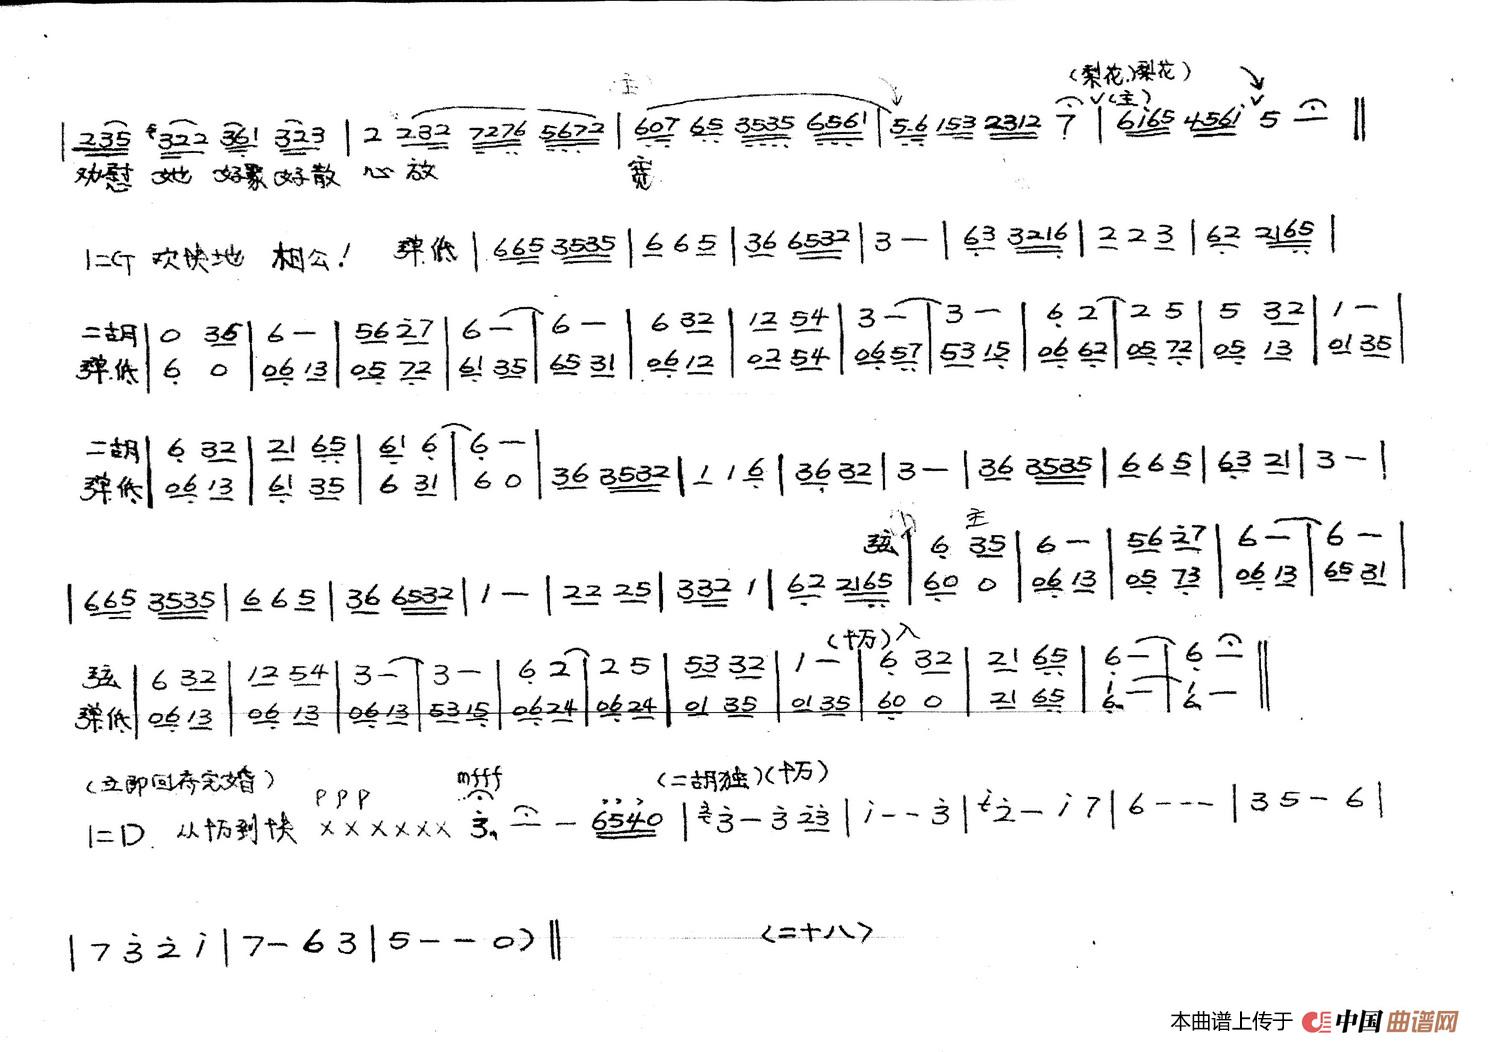 (主) (梨花、梨花)
(主)
| 235 322 361 323 | 2 232 7276 5672 | 607 65 3535 6561 | 5·6 153 2312 7 | 6165 4561 5 — ‖
劝慰 她 好聚 好散 心 放 宽
1=G 欢快地 相公! 弹.低 | 665 3535 | 6 6 5 | 36 6532 | 3 — | 63 3216 | 2 2 3 | 62 2165 |
二胡 | 0 35 | 6 — | 56 27 | 6 — | 6 — | 6 32 | 12 54 | 3 — | 3 — | 6 2 | 2 5 | 5 32 | 1 — |
弹.低 | 6 0 | 06 13 | 05 72 | 61 35 | 65 31 | 06 12 | 02 54 | 06 57 | 53 15 | 06 62 | 05 72 | 05 13 | 01 35 |
二胡 | 6 32 | 21 65 | 61 6 | 6 — |
弹低 | 06 13 | 61 35 | 6 31 | 6 0 | 36 3532 | 1 1 6 | 36 32 | 3 — | 36 3535 | 6 6 5 | 63 21 | 3 — |
主
弦 | 6 35 | 6 — | 56 27 | 6 — | 6 — |
| 665 3535 | 6 6 5 | 36 6532 | 1 — | 22 25 | 332 1 | 62 2165 | 60 0 | 06 13 | 05 73 | 06 13 | 65 31 |
(十万)入
弦 | 6 32 | 12 54 | 3 — | 3 — | 6 2 | 2 5 | 53 32 | 1 — | 6 32 | 21 65 | 6 — | 6 — ‖
弹低 | 06 13 | 06 13 | 06 13 | 53 15 | 06 24 | 06 24 | 01 35 | 01 35 | 60 0 | 21 65 | 6 — | 6 — ‖
(立即回府完婚) mfff (二胡独)(十万)
P P P
1=D. 从十万到快 X X X X X X 3 — — 6540 | 3 — 3 23 | 1 - - 3 | 2 — 1 7 | 6 - - - | 3 5 — 6 |
| 7 3 2 1 | 7 — 6 3 | 5 - - 0) ‖ <二十八>
本曲谱上传于 中国曲谱网